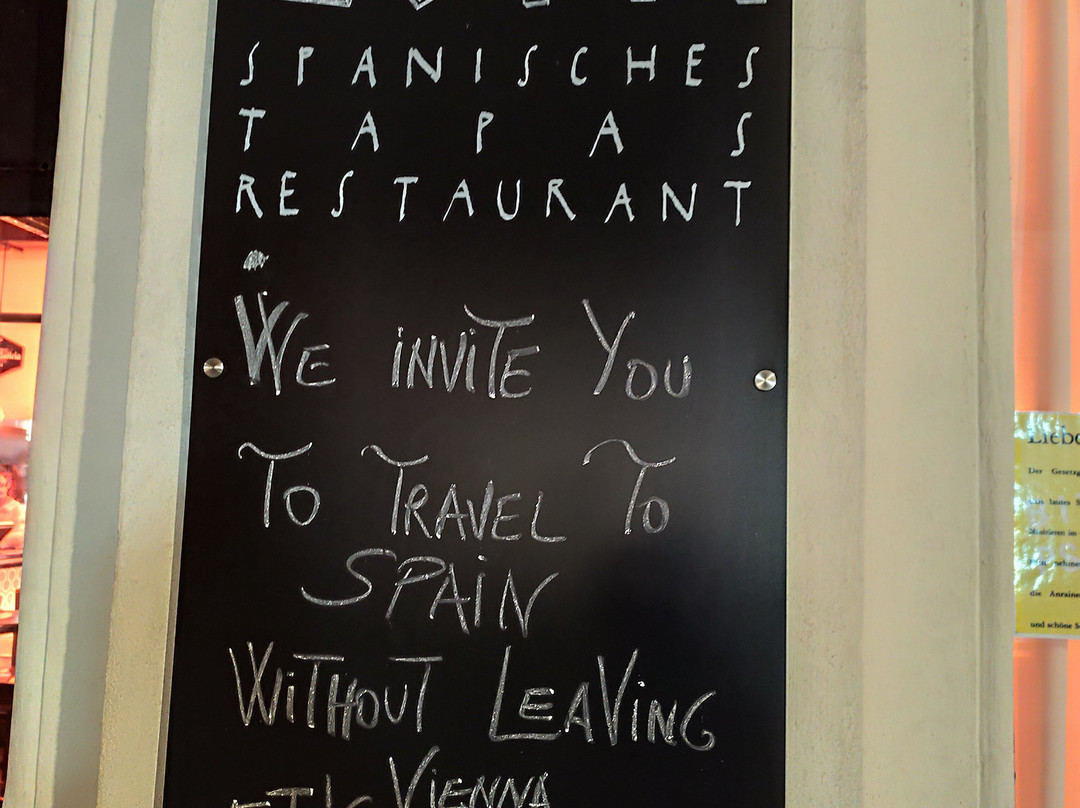 SPANISCHES
TAPAS
RESTAURANT
WE INVITE YOU
TO TRAVEL TO
SPAIN
WITHOUT LEAVING
VIENNA
Der
lautes
im
die Anraine
und schöne S